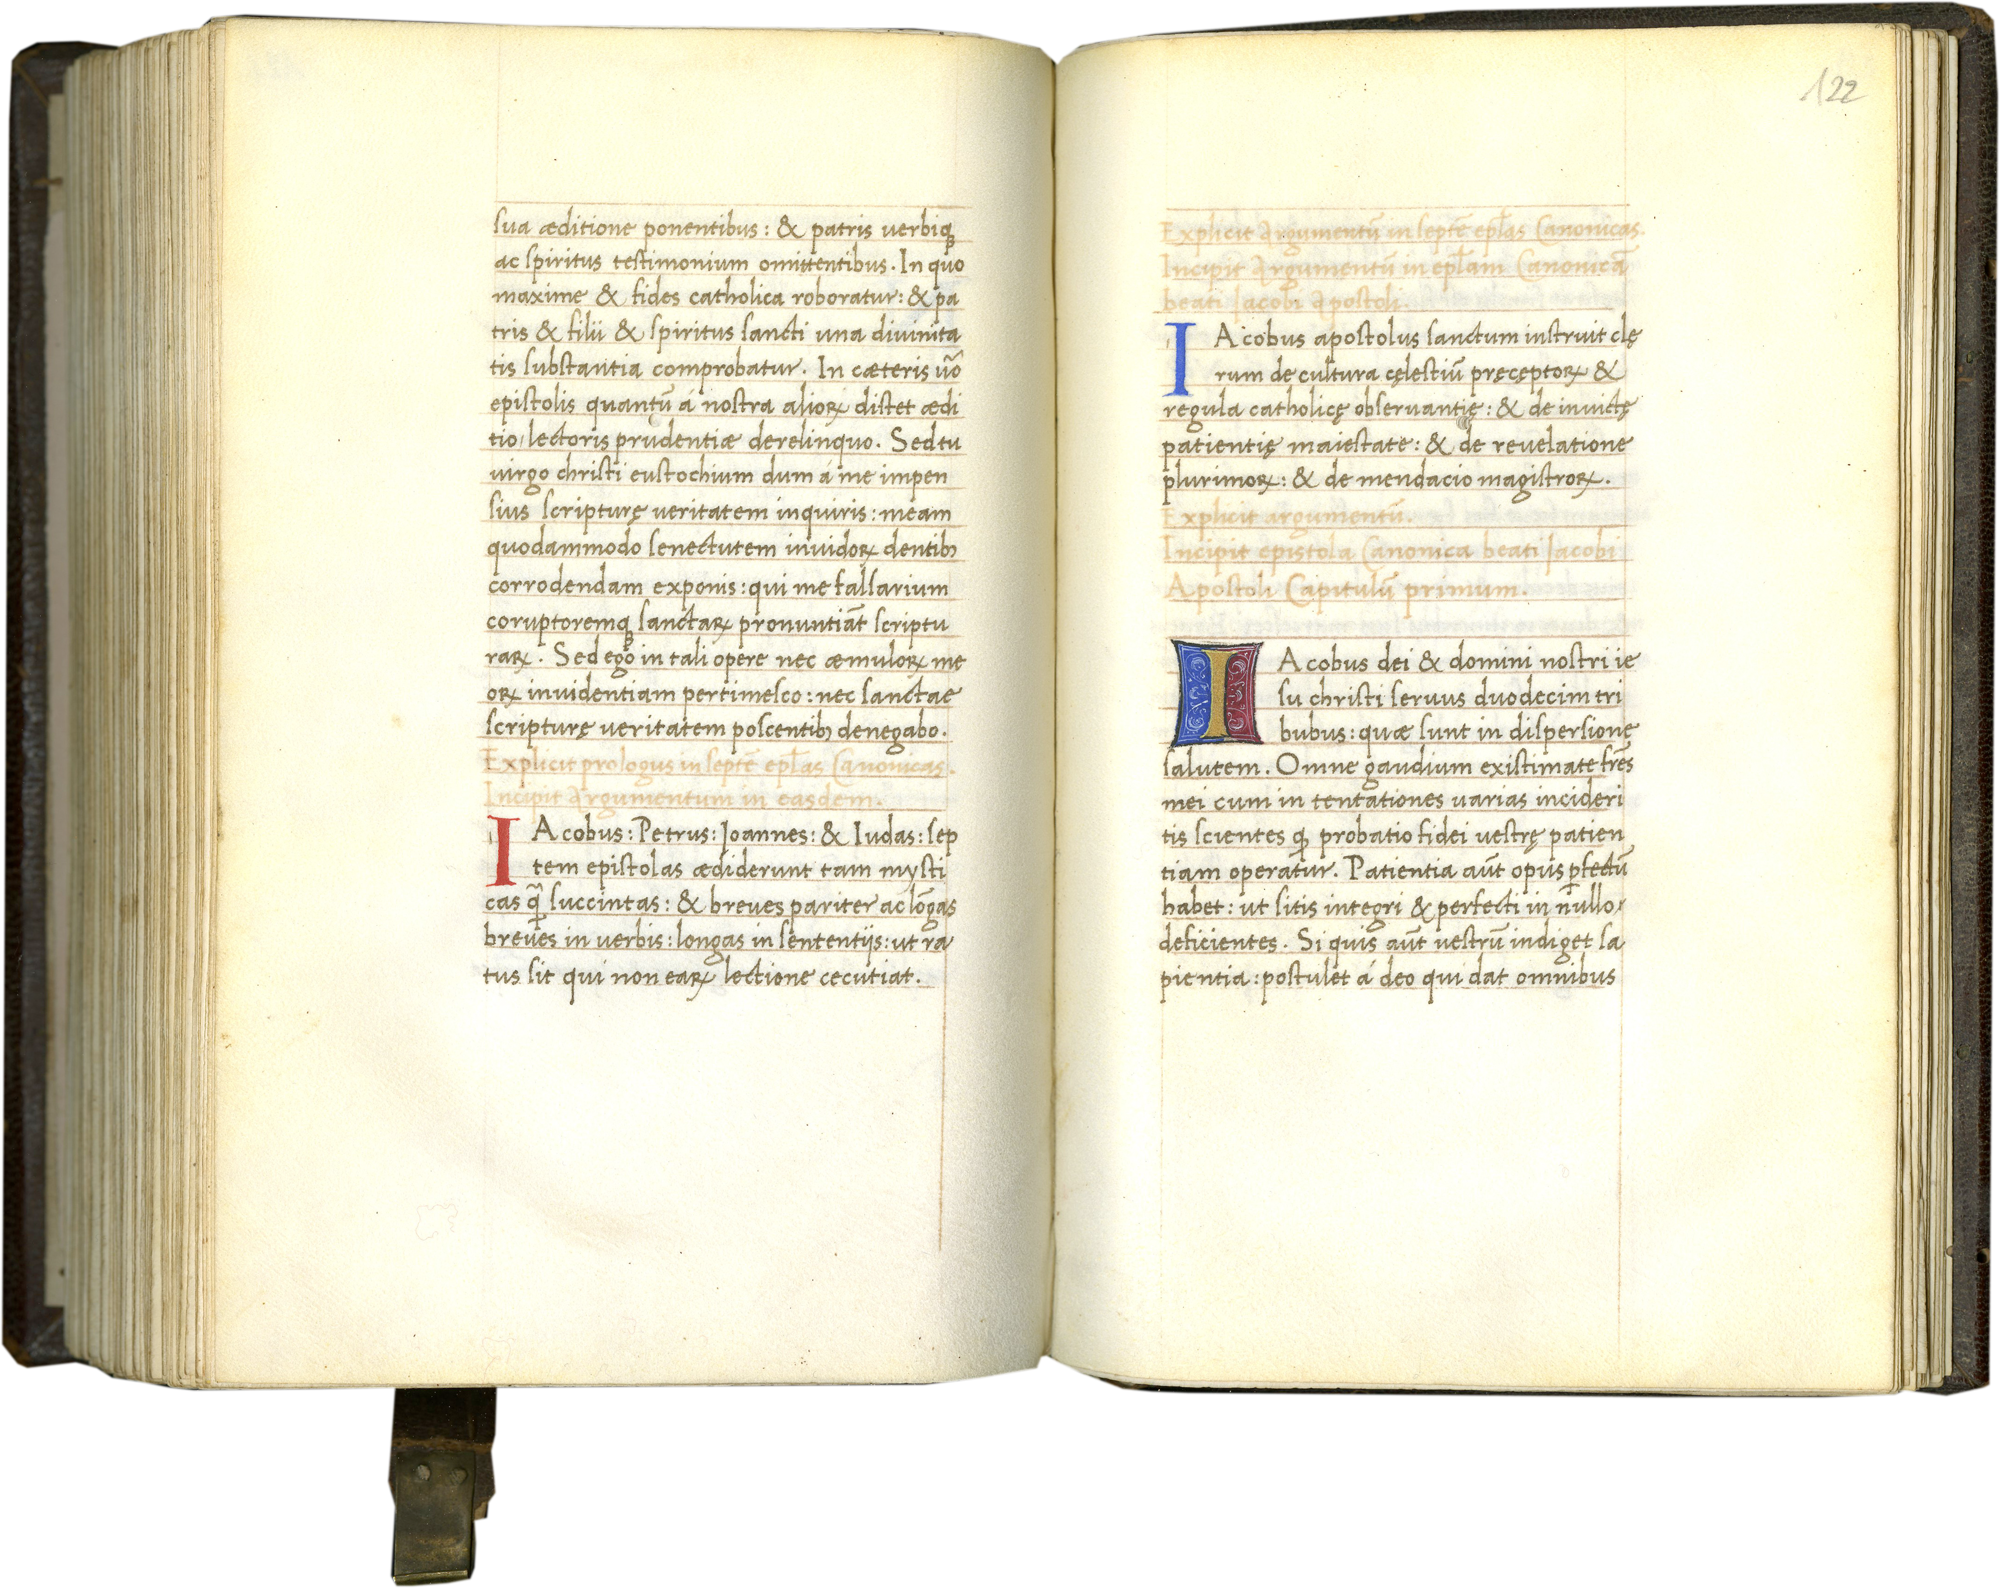 sua æditione ponentibus: & patris verbiqꝫ
ac spiritus testimonium omittentibus. In quo
maxime & fides catholica roboratur: & pa
tris & filii & spiritus sancti una divinita
tis substantia comprobatur. In cæteris ũo
epistolis quantũ á nostra alioꝝ distet ædi
tio, lectoris prudentiæ derelinquo. Sed tu
virgo christi eustochium dum á me impen
sius scripturę veritatem inquiris: meam
quodammodo senectutem invidoꝝ dentibꝫ
corrodendam exponis: qui me falsarium
coruptoremqꝫ sanctaꝝ pronuntiãt scriptu
raꝝ. Sed ego in tali opere nec æmuloꝝ me
oꝝ invidentiam pertimesco: nec sanctae
scripturę veritatem poscentibꝫ denegabo.
Explicit prologus in septẽ ep̃las Canonicas.
Incipit Argumentum in easdem.
IAcobus: Petrus: Joannes: & Iudas: sep
tem epistolas ædiderunt tam mysti
cas q̃ succintas: & breves pariter ac lõgas
breves in verbis: longas in sententijs: ut ra
tus sit qui non eaꝝ lectione cecutiat.
122
Explicit Argumentũ in septẽ ep̃las Canonicas.
Incipit Argumentũ in ep̃lam Canonicã
beati Jacobi Apostoli.
IAcobus apostolus sanctum instruit clę
rum de cultura cęlestiũ pręceptoꝝ &
regula catholicę observantię: & de invictę
patientię maiestate: & de revelatione
plurimoꝝ: & de mendacio magistroꝝ.
Explicit argumentũ.
Incipit epistola Canonica beati Jacobi
Apostoli Capitulũ primum.
IAcobus dei & domini nostri ie
su christi servus duodecim tri
bubus: quæ sunt in dispersionę
salutem. Omne gaudium existimate frẽs
mei cum in tentationes varias incideri
tis scientes ꝙ probatio fidei vestrę patien
tiam operatur. Patientia aũt opus ꝑfectũ
habet: ut sitis integri & perfecti in nullo
deficientes. Si quis aũt vestrũ indiget sa
pientia: postulet á deo qui dat omnibus